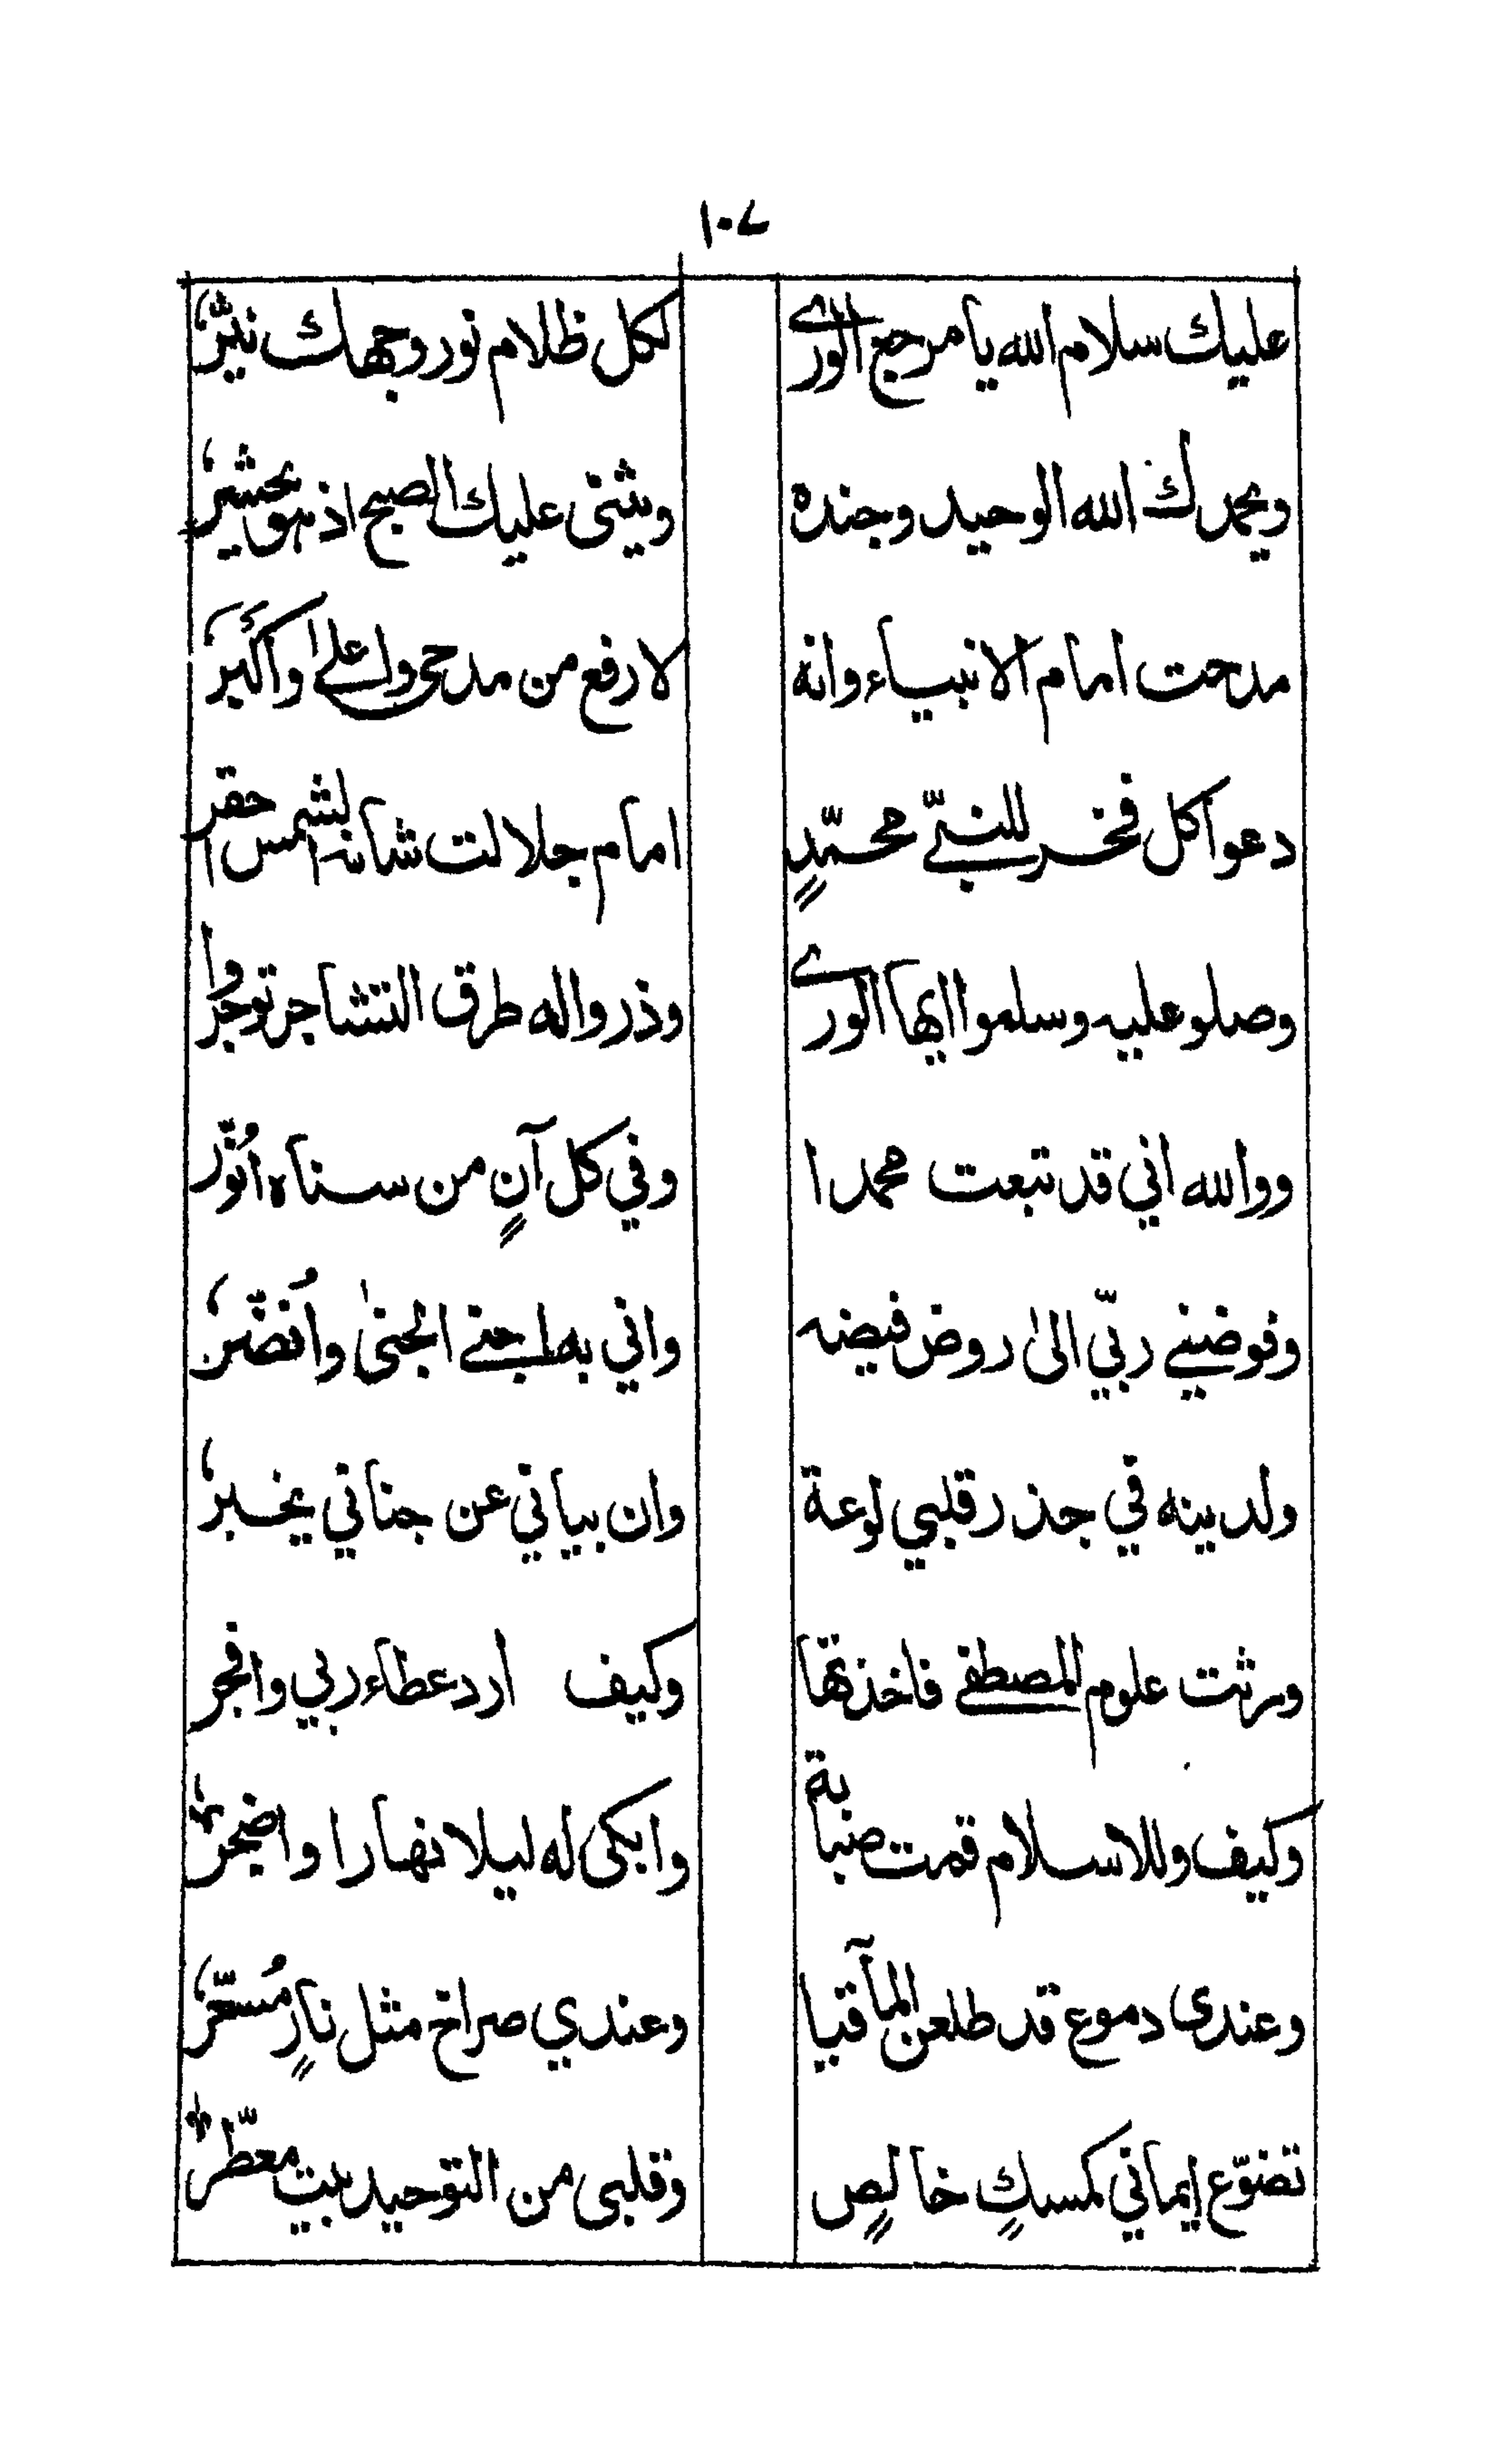 ١٠٧
عليك سلام الله يا مرجع الورى لكل ظلام نور وجهك نيّرٌ
ويحمدك الله الوحيد وجنده ويثنى عليك الصبح اذ هو يحشرُ
مدحت امام الانبياء وانه لارفع من مدحى واعلى واكبرُ
دعوا كل فخر للنبىّ محمّدٍ امام جلالت شانه الشمس احقر
وصلو عليه وسلموا ايها الورى وذروا له طرق التشاجر توجروا
ووالله اني قد تبعت محمدا وفي كل آنٍ من سناه انُوّر
وفوضنى ربّي الىٰ روض فيضه واني به اجنى الجنىٰ واُنضّرُ
ولدينه في جذر قلبي لوعة وان بياني عن جناني يخبرُ
ورثت علوم المصطفى فاخذتها وكيف ارد عطاء ربي وافجر
وكيف وللاسلام قمت صبابة وابكى له ليلا نهارا واضجرُ
وعندى دموع قد طلعن المآقيا وعندي صراخ مثل نارٍ مُسعّرُ
تضوّع إيماني كمسكٍ خالصٍ وقلبى من التوحيد بيت معطّرٌ